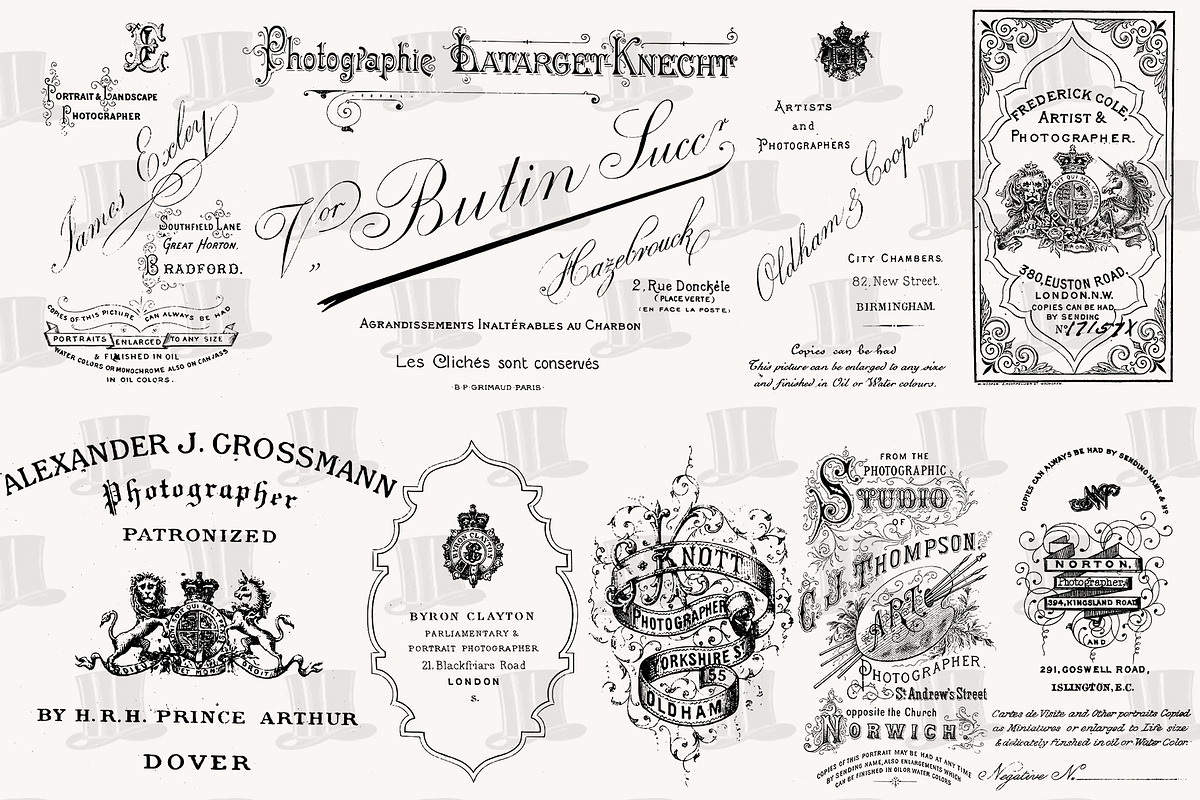 PORTRAIT & LANDSCAPE
PHOTOGRAPHER
James Exley,
SOUTHFIELD LANE
GREAT HORTON.
BRADFORD.
COPIES OF THIS PICTURE CAN ALWAYS BE HAD
PORTRAITS ENLARGED TO ANY SIZE
& FINISHED IN OIL
WATER COLORS OR MONOCHROME ALSO ON CANVASS
IN OIL COLORS.
Photographie LATARGET-KNECHT
Vor Butin Succr
Hazebrouck
2, Rue Donckèle
(PLACE VERTE)
(EN FACE LA POSTE)
AGRANDISSEMENTS INALTÉRABLES AU CHARBON
Les Clichés sont conservés
B·P·GRIMAUD·PARIS·
ARTISTS
and
PHOTOGRAPHERS
Oldham & Cooper
CITY CHAMBERS.
82, New Street,
BIRMINGHAM.
Copies can be had
This picture can be enlarged to any size
and finished in Oil or Water colours.
FREDERICK COLE,
ARTIST &
PHOTOGRAPHER.
380, EUSTON ROAD,
LONDON. N.W.
COPIES CAN BE HAD
BY SENDING
No 17157X
ALEXANDER J. GROSSMANN
Photographer
PATRONIZED
DIEU ET MON DROIT
BY H.R.H. PRINCE ARTHUR
DOVER
BYRON CLAYTON
BYRON CLAYTON
PARLIAMENTARY &
PORTRAIT PHOTOGRAPHER
21. Blackfriars Road
LONDON
S.
KNOTT
PHOTOGRAPHER
YORKSHIRE ST
55
OLDHAM
FROM THE
PHOTOGRAPHIC
STUDIO
OF
C. J. THOMPSON.
ART
PHOTOGRAPHER.
St Andrew's Street
opposite the Church
NORWICH
COPIES OF THIS PORTRAIT MAY BE HAD AT ANY TIME
BY SENDING NAME, ALSO ENLARGEMENTS WHICH
CAN BE FINISHED IN OIL OR WATER COLORS
COPIES CAN ALWAYS BE HAD BY SENDING NAME & No
NORTON,
Photographer,
394, KINGSLAND ROAD
AND
291, GOSWELL ROAD,
ISLINGTON, E.C.
Cartes de Visite and Other portraits Copied
as Miniatures or enlarged to Life size
& delicately finished in oil or Water Color.
Negative No.